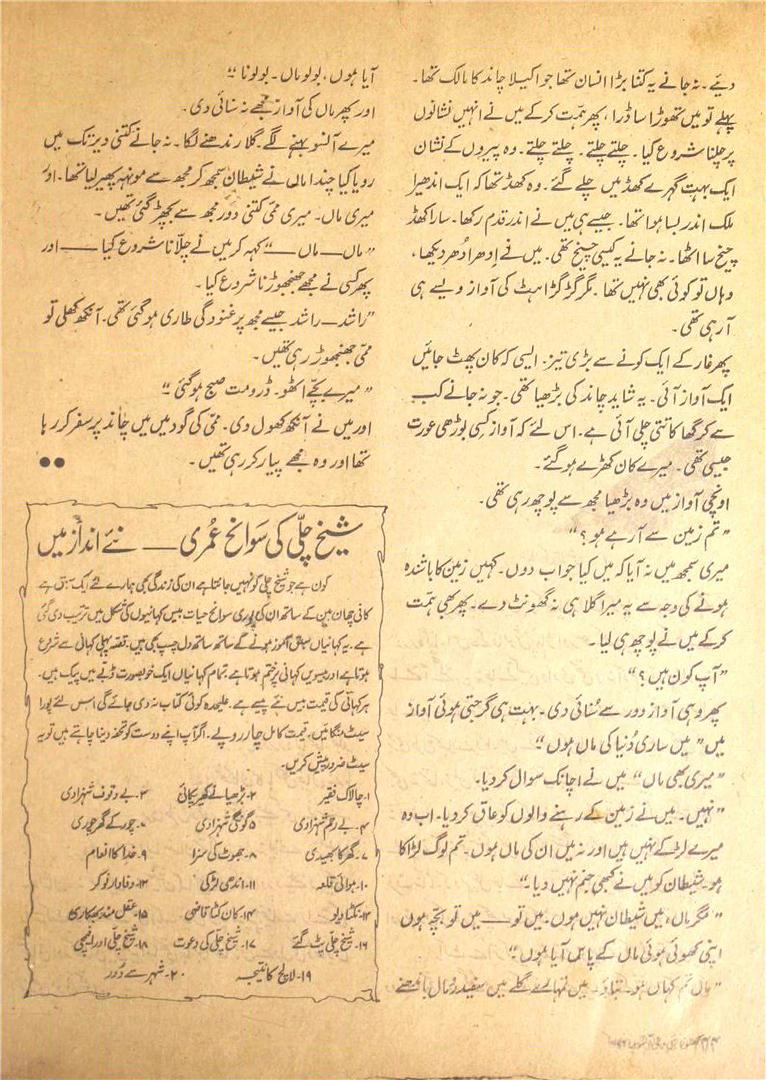 دیئے۔ نہ جانے یہ کتنا بڑا انسان تھا جو اکیلا چاند کا مالک تھا۔
پہلے تو میں تھوڑا سا ڈرا، پھر ہمّت کر کے میں نے انہیں نشانوں
پر چلنا شروع کیا۔ چلتے چلتے۔ چلتے چلتے۔ وہ پیروں کے نشان
ایک بہت گہرے کھڈ میں چلے گئے۔ وہ کھڈ تھا کہ ایک اندھیرا
ملک اندر بسا ہوا تھا۔ جیسے ہی میں نے اندر قدم رکھا۔ سارا کھڈ
چیخ سا اٹھا۔ نہ جانے یہ کیسی چیخ تھی۔ میں نے اِدھر اُدھر دیکھا،
وہاں تو کوئی بھی نہیں تھا۔ مگر گڑگڑاہٹ کی آواز ویسے ہی
آ رہی تھی۔
پھر غار کے ایک کونے سے بڑی تیز۔ ایسی کہ کان پھٹ جائیں
ایک آواز آئی۔ یہ شاید چاند کی بڑھیا تھی۔ جو نہ جانے کب
سے کرگھا کاتتی چلی آئی ہے۔ اس لئے کہ آواز کسی بوڑھی عورت
جیسی تھی۔ میرے کان کھڑے ہو گئے۔
اونچی آواز میں وہ بڑھیا مجھ سے پوچھ رہی تھی۔
"تم زمین سے آ رہے ہو؟"
میری سمجھ میں نہ آیا کہ میں کیا جواب دوں۔ کہیں زمین کا باشندہ
ہونے کی وجہ سے یہ میرا گلا ہی نہ گھونٹ دے۔ پھر بھی ہمّت
کر کے میں نے پوچھ ہی لیا۔
"آپ کون ہیں؟"
پھر وہی آواز دور سے سُنائی دی۔ بہت ہی گرجتی ہوئی آواز
میں "میں ساری دُنیا کی ماں ہوں"
"میری بھی ماں" میں نے اچانک سوال کر دیا۔
"نہیں۔ میں نے زمین کے رہنے والوں کو عاق کر دیا۔ اب وہ
میرے لڑکے نہیں ہیں اور نہ میں ان کی ماں ہوں۔ تم لوگ لڑاکا
ہو۔ شیطان کو میں نے کبھی جنم نہیں دیا۔"
"مگر ماں، میں شیطان نہیں ہوں۔ میں تو — میں تو بچّہ ہوں
اپنی کھوئی ہوئی ماں کے پاس آیا ہوں"
"ماں تم کہاں ہو۔ بتاؤ۔ میں تمہارے گلے میں سفید رُمال باندھنے
آیا ہوں، بولو ماں۔ بولو نا"
اور پھر ماں کی آواز مجھے نہ سنائی دی۔
میرے آنسو بہنے لگے۔ گلا رندھنے لگا۔ نہ جانے کتنی دیر تک میں
رویا کیا چندا ماں نے شیطان سمجھ کر مجھ سے مونہہ پھیر لیا تھا۔ اور
میری ماں۔ میری ممّی کتنی دور مجھ سے بچھڑ گئی تھیں۔
"ماں — ماں —" کہہ کر میں نے چلّانا شروع کیا — اور
پھر کسی نے مجھے جھنجھوڑنا شروع کیا۔
"راشد — راشد جیسے مجھ پر غنودگی طاری ہو گئی تھی۔ آنکھ کھلی تو
ممّی جھنجھوڑ رہی تھیں۔
"میرے بچّے اُٹھو۔ ڈرو مت صبح ہو گئی"
اور میں نے آنکھ کھول دی۔ ممّی کی گود میں میں چاند پر سفر کر رہا
تھا اور وہ مجھے پیار کر رہی تھیں۔ ●●
شیخ چلّی کی سَوانح عُمری — نئے انداز میں
کون ہے جو شیخ چلّی کو نہیں جانتا ہے ان کی زندگی بھی ہمارے لئے ایک سبق ہے
کافی چھان بین کے ساتھ ان کی پوری سوانح حیات بیس کہانیوں کی شکل میں ترتیب دی گئی
ہے۔ یہ کہانیاں سبق آموز ہونے کے ساتھ ساتھ دلچسپ بھی ہیں۔ قصّہ پہلی کہانی سے شروع
ہوتا ہے اور بیسویں کہانی پر ختم ہوتا ہے، تمام کہانیاں ایک خوبصورت ڈبّے میں پیک ہیں۔
ہر کہانی کی قیمت بیس نئے پیسے ہے۔ علیحدہ کوئی کتاب نہ دی جائے گی اس لئے پورا
سیٹ منگائیں۔ قیمت کامل چار روپے۔ اگر آپ اپنے دوست کو تحفہ دینا چاہتے ہیں تو یہ
سیٹ ضرور پیش کریں۔
۱۔ چالاک فقیر ۲۔ بڑھیا نے کھیر پکائی ۳۔ بے وقوف شہزادی
۴۔ بے رحم شہزادی ۵ گونگی شہزادی ۶۔ چور کے گھر چوری
۷۔ گھر کا بھیدی ۸۔ جھوٹ کی سزا ۹۔ خدا کا انعام
۱۰۔ ہوائی قلعہ ۱۱۔ اندھی لڑکی ۱۲۔ وفادار نوکر
۱۳۔ دیو ۱۴۔ کان کٹا قاضی ۱۵۔ عقل مند بھکاری
۱۶۔ شیخ چلّی پٹ گئے ۱۷۔ شیخ چلّی کی دعوت ۱۸۔ شیخ چلّی اور افیمچی
۱۹۔ لالچ کا نتیجہ ۲۰۔ شہر سے دُور